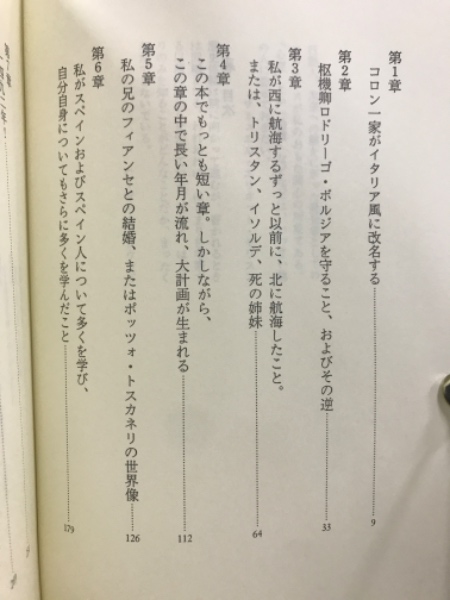 第1章
コロン一家がイタリア風に改名する
9
第2章
枢機卿ロドリーゴ・ボルジアを守ること、およびその逆
33
第3章
私が西に航海するずっと以前に、北に航海したこと。
または、トリスタン、イソルデ、死の姉妹
64
第4章
この本でもっとも短い章。しかしながら、
この章の中で長い年月が流れ、大計画が生まれる
112
第5章
私の兄のフィアンセとの結婚、またはポッツォ・トスカネリの世界像
126
第6章
私がスペインおよびスペイン人について多くを学び、
自分自身についてもさらに多くを学んだこと
179